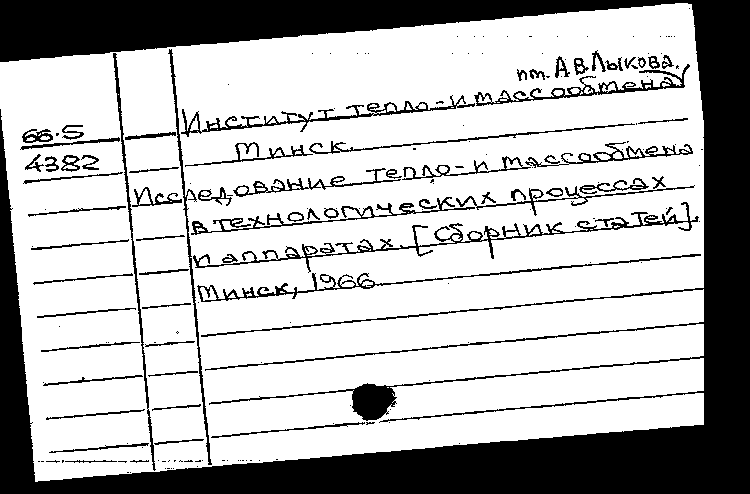 им. А.В. Лыкова.
66.5 Институт тепло- и массообмена
4382 Минск.
Исследование тепло- и массообмена
в технологических процессах
и аппаратах. [Сборник статей].
Минск, 1966